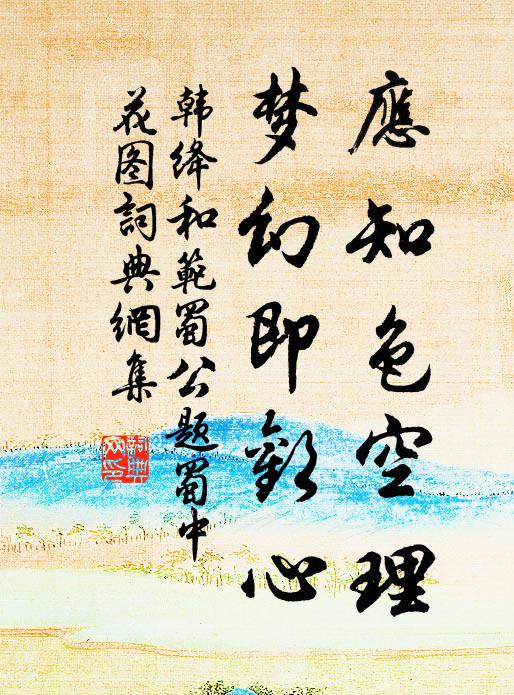 應知色空理
梦幻即歡心
韩绛和範蜀公題蜀中
花图詞典網集